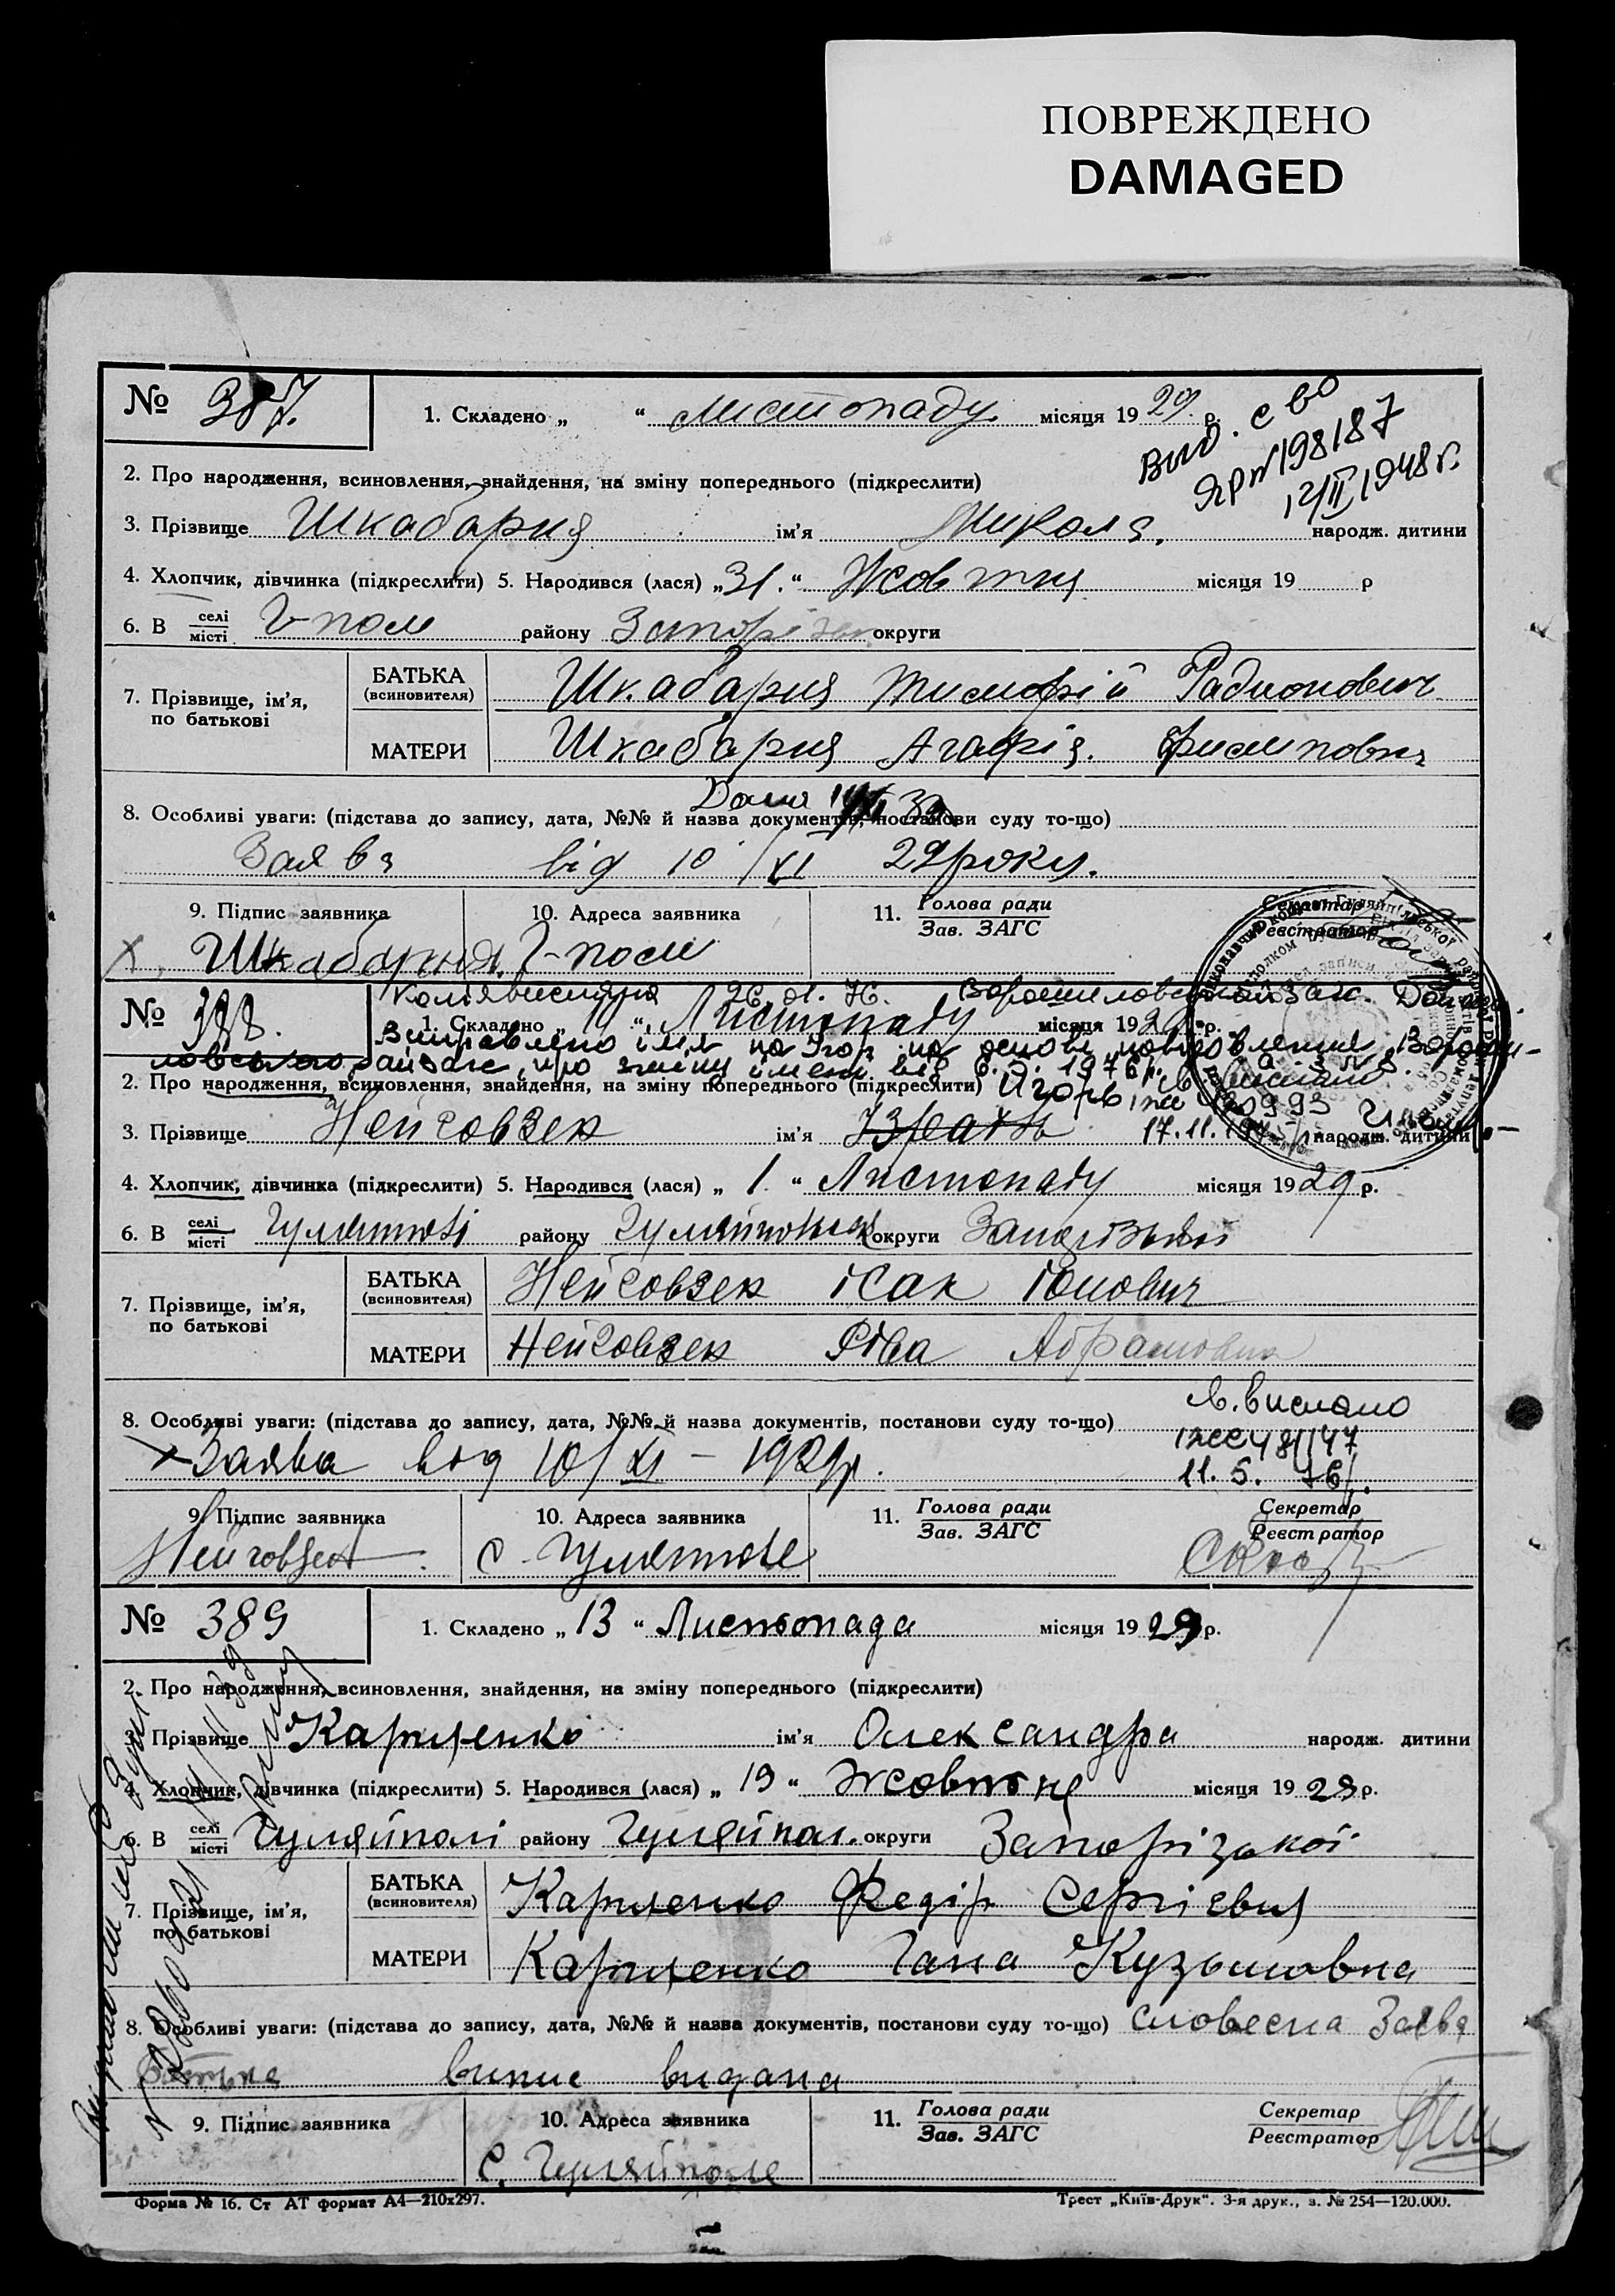 ПОВРЕЖДЕНО
DAMAGED
№ 387.
1. Складено „ “ Листопаду місяця 1929 р.
Вид. с во
ЯР № 198187
12/II 1948 г.
2. Про народження, всиновлення, знайдення, на зміну попереднього (підкреслити)
3. Прізвище Шкабарня ім’я Микола. народж. дитини
4. Хлопчик, дівчинка (підкреслити) 5. Народився (лася) „31.“ Жовтня місяця 19 р
6. В селі/місті Г-поле району Запорізьк округи
7. Прізвище, ім’я, по батькові
БАТЬКА (всиновителя) Шкабарня Тимофій Радионович
МАТЕРИ Шкабарня Агафія. Филиповна
8. Особливі уваги: (підстава до запису, дата, №№ й назва документів, постанови суду то-що)
Заява від 10/XI 29 року.
9. Підпис заявника 10. Адреса заявника 11. Голова ради/Зав. ЗАГС Секретар/Реєстратор
Шкабарня Г-поле
№ 388.
26. 01. 76.
1. Складено „11“ Листопаду місяця 1929 р.
Виправлено імя на Ігор на основі
про зміну імени від 1976 р.
2. Про народження, всиновлення, знайдення, на зміну попереднього (підкреслити) Игорь
3. Прізвище Нейговзен ім’я Израель 17.11. народж. дитини
4. Хлопчик, дівчинка (підкреслити) 5. Народився (лася) „1.“ Листопаду місяця 1929 р.
6. В селі/місті Гуляйполі району Гуляйпольск округи Запорізької
7. Прізвище, ім’я, по батькові
БАТЬКА (всиновителя) Нейговзен Ісак Юнович
МАТЕРИ Нейговзен Ріва Абрамовна
св. вислано
8. Особливі уваги: (підстава до запису, дата, №№ й назва документів, постанови суду то-що)
Заява від 10/XI – 1929 р.
11. 5. 76 р.
9. Підпис заявника 10. Адреса заявника 11. Голова ради/Зав. ЗАГС Секретар/Реєстратор
Нейговзен с. Гуляйполе
№ 389
1. Складено „13“ Листопада місяця 1929 р.
2. Про народження, всиновлення, знайдення, на зміну попереднього (підкреслити)
3. Прізвище Карпенко ім’я Олександра народж. дитини
4. Хлопчик, дівчинка (підкреслити) 5. Народився (лася) „19“ Жовтня місяця 1929 р.
6. В селі/місті Гуляйполі району Гуляйпол. округи Запорізької
7. Прізвище, ім’я, по батькові
БАТЬКА (всиновителя) Карпенко Федір Сергієвич
МАТЕРИ Карпенко Гана Кузьмовна
8. Особливі уваги: (підстава до запису, дата, №№ й назва документів, постанови суду то-що) Словесна Заява
батька випис видана
9. Підпис заявника 10. Адреса заявника 11. Голова ради/Зав. ЗАГС Секретар/Реєстратор
с. Гуляйполе
Форма № 16. Ст АТ формат А4—210х297. Трест „Київ-Друк“. 3-я друк., з. № 254—120.000.